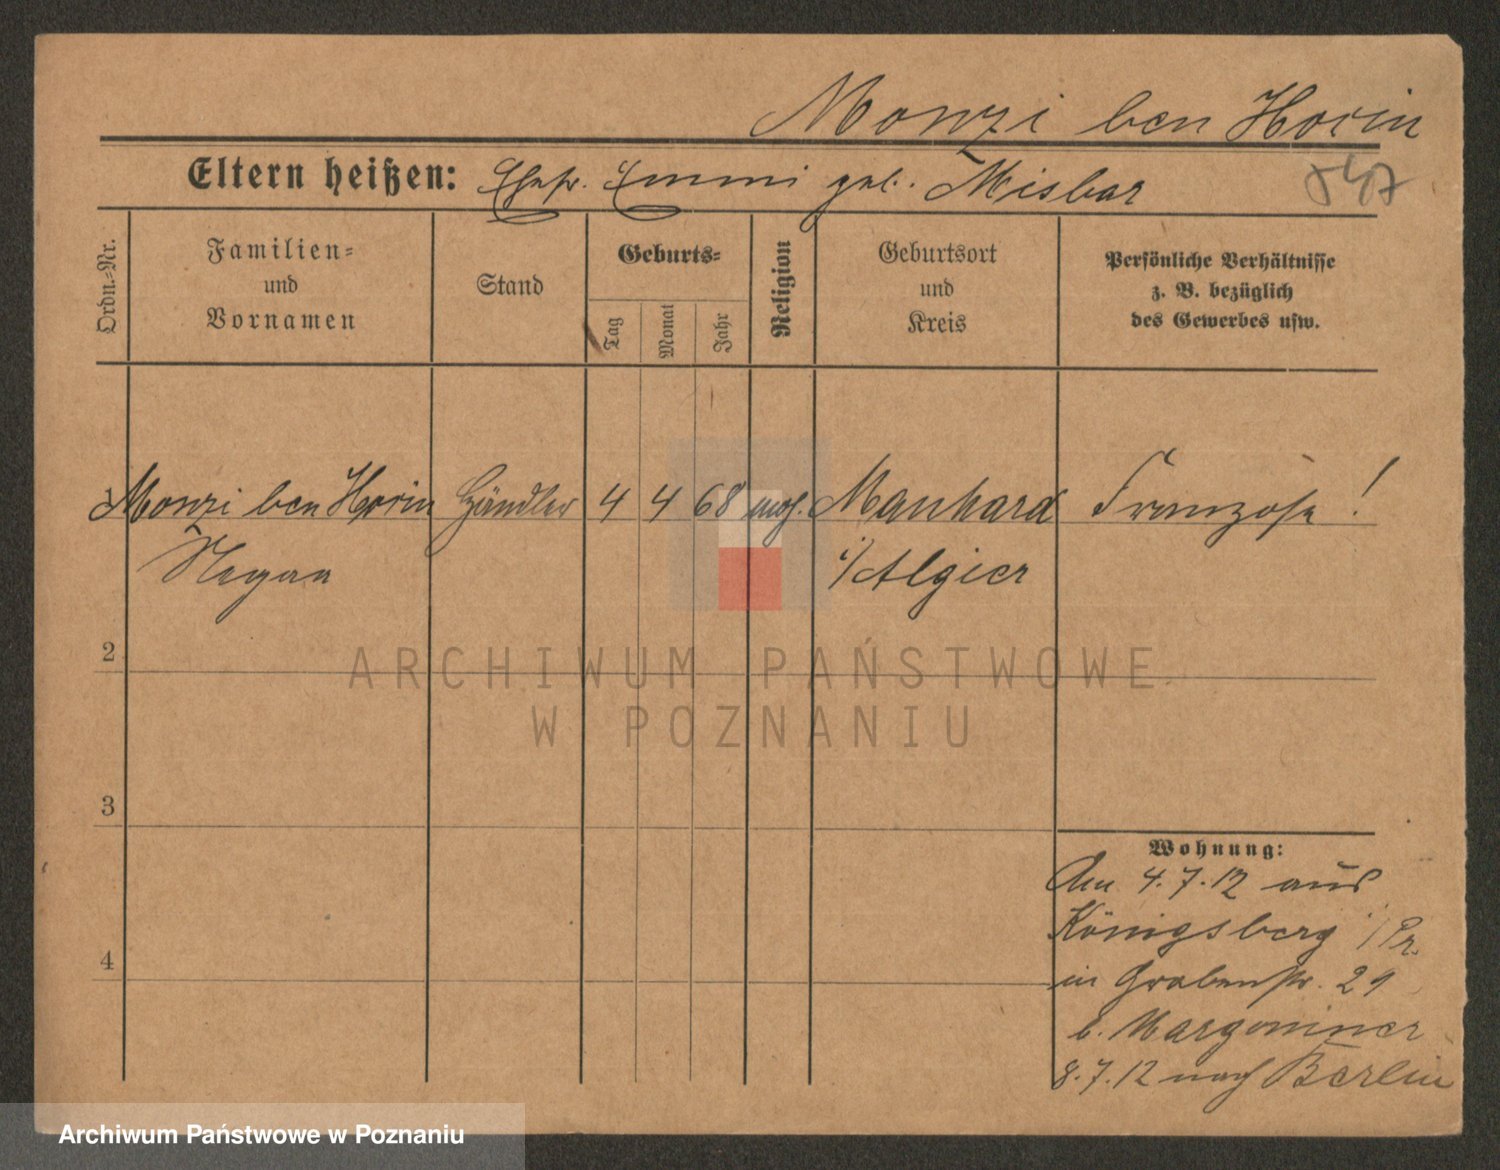 Monzi ben Horin
Eltern heißen: Ehefr. Emmi geb. Misbar
Ordn.-Nr.
Familien-
und
Vornamen
Stand
Geburts-
Tag
Monat
Jahr
Religion
Geburtsort
und
Kreis
Persönliche Verhältnisse
z. B. bezüglich
des Gewerbes usw.
1 Monzi ben Horin Händler 4 4 68 mos. Manhard Franzose!
i/Algier
2
3
4
Wohnung:
Am 4.7.12 aus
Königsberg i/Pr.
in Grabenstr. 29
b. Margoniner
8.7.12 nach Berlin
ARCHIWUM PAŃSTWOWE
W POZNANIU
Archiwum Państwowe w Poznaniu